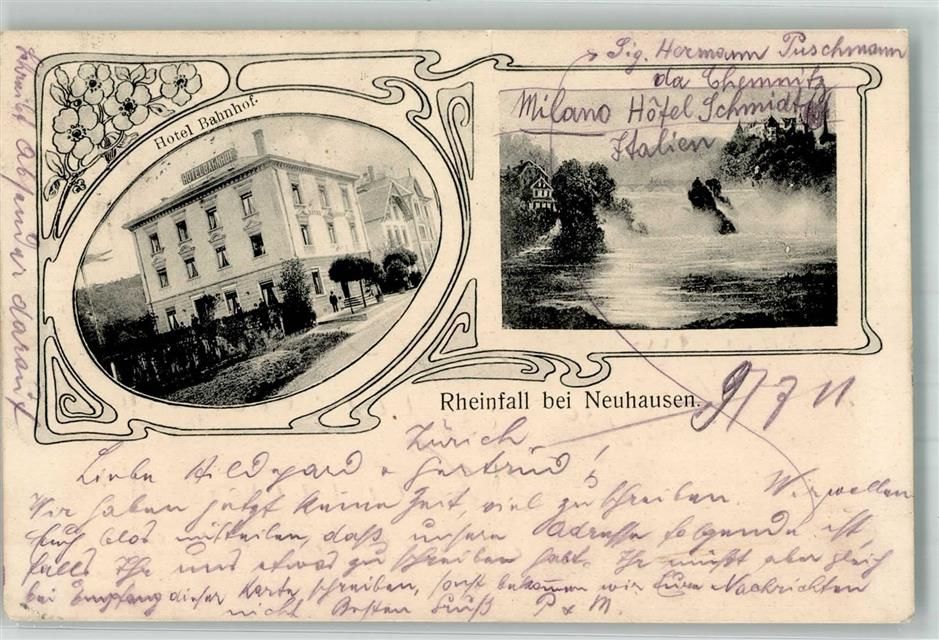 Sig. Hermann Puschmann
da Chemnitz
Milano Hôtel Schmidt
Italien
Hotel Bahnhof.
HOTEL BAHNHOF
Rheinfall bei Neuhausen.
Zürich 9/7 11.
Liebe Hildegard & Gertrud!
Wir haben jetzt keine Zeit, viel zu schreiben. Wir wollen
Euch blos mitteilen, daß unsere Adresse folgende ist,
falls Ihr uns etwas zu schreiben habt. Ihr müßt aber gleich
bei Empfang dieser Karte schreiben, sonst bekommen wir Eure Nachrichten
nicht Besten Gruß P & M.
Schreibt Absender darauf